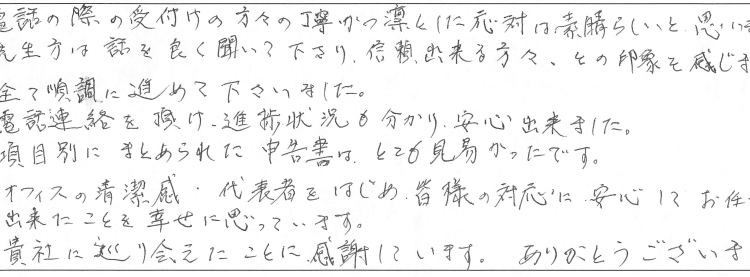 電話の際の受付けの方々の丁寧かつ凛とした応対は素晴らしいと思い
先生方は話を良く聞いて下さり、信頼出来る方々、との印象を感じ
全て順調に進めて下さいました。
電話連絡を頂け、進捗状況も分かり、安心出来ました。
項目別にまとめられた申告書は、とても見易かったです。
オフィスの清潔感・代表者をはじめ、皆様の対応に、安心してお任
出来たことを幸せに思っています。
貴社に巡り会えたことに、感謝しています。 ありがとうございま